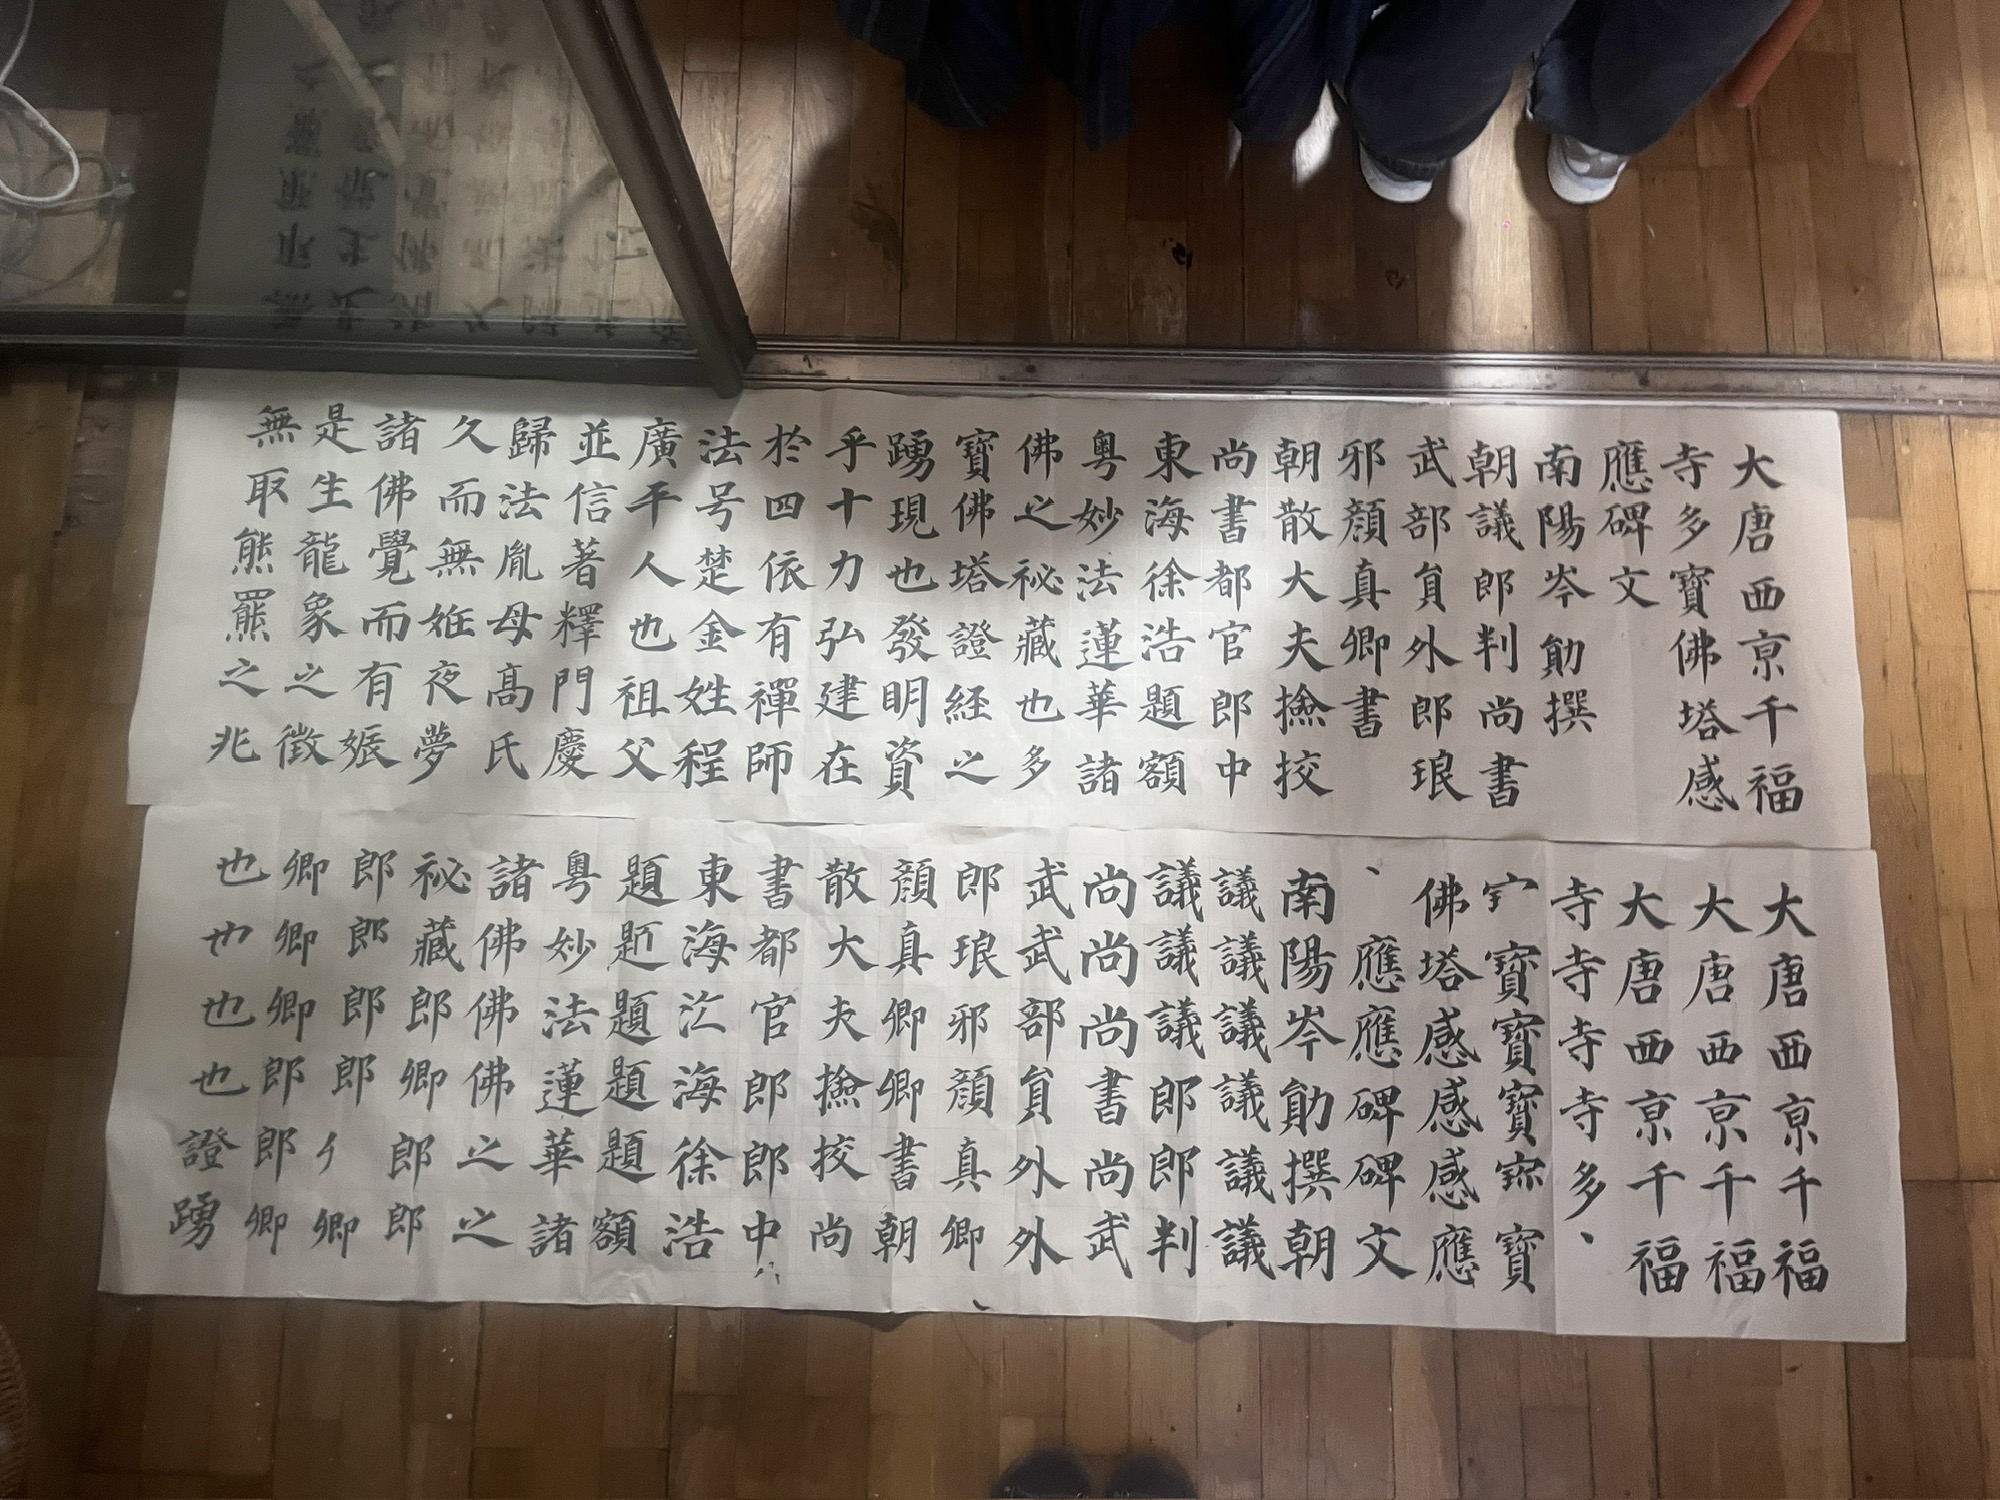 大唐西京千福
寺多寶佛塔感
應碑文
南陽岑勛撰
朝議郎判尚書
武部員外郎琅
邪顏真卿書
朝散大夫撿挍
尚書都官郎中
東海徐浩題額
粵妙法蓮華諸
佛之祕藏也多
寶佛塔證經之
踴現也發明資
乎十力弘建在
於四依有禪師
法号楚金姓程
廣平人也祖父
並信著釋門慶
歸法胤母高氏
久而無姙夜夢
諸佛覺而有娠
是生龍象之徵
無取熊羆之兆
大唐西京千福
大唐西京千福
大唐西京千福
寺寺寺寺多、
寶寶寶寶
佛塔感感感應
、應應碑碑文
南陽岑勛撰朝
議議議議議議
議議議郎郎判
尚尚尚書尚武
武武部員外外
郎琅邪顏真卿
顏真卿卿書朝
散大夫撿挍尚
書都官郎郎中
東海海徐浩
題題題題額
粵妙法蓮華諸
諸佛佛佛之之
祕藏郎卿郎郎
郎郎郎郎卿
卿卿卿郎郎卿
也也也也證踴